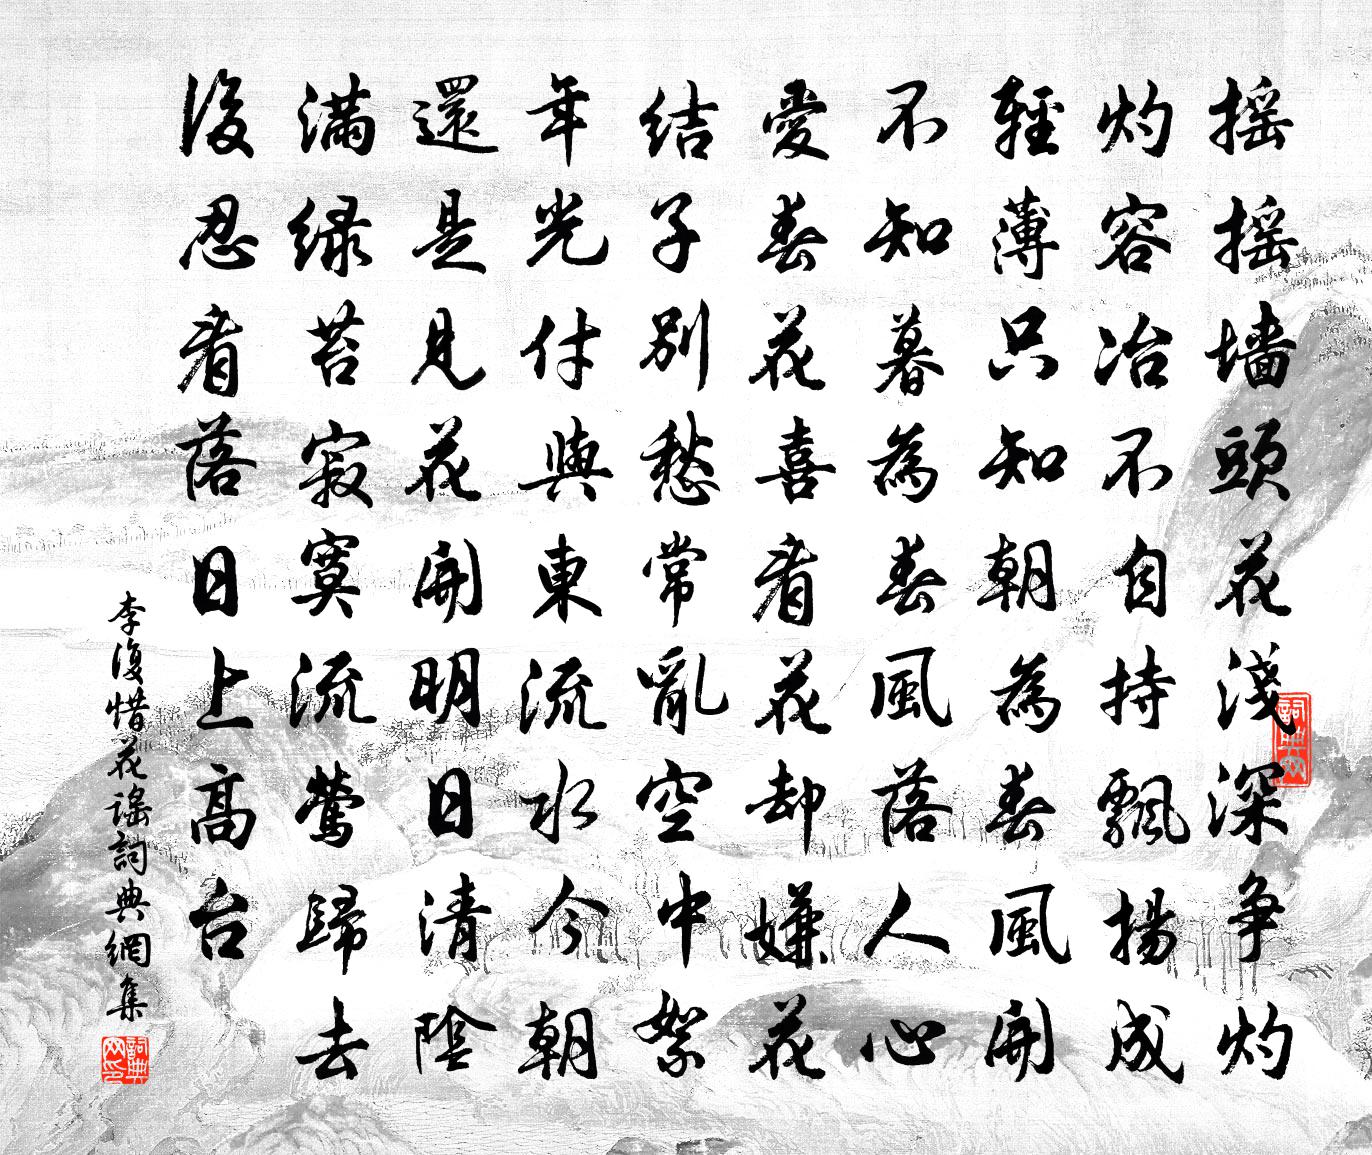 搖搖墻頭花淺深争灼
灼容冶不自持飄揚成
輕薄只知朝為春風開
不知暮為春風落人心
愛春花喜看花却嫌花
結子别愁常亂空中絮
年光付與東流水今朝
還是見花開明日清陰
滿緑苔寂寞流鶯歸去
後忍看落日上高台
李復惜花謡詞典網集
詞典网
詞典网印